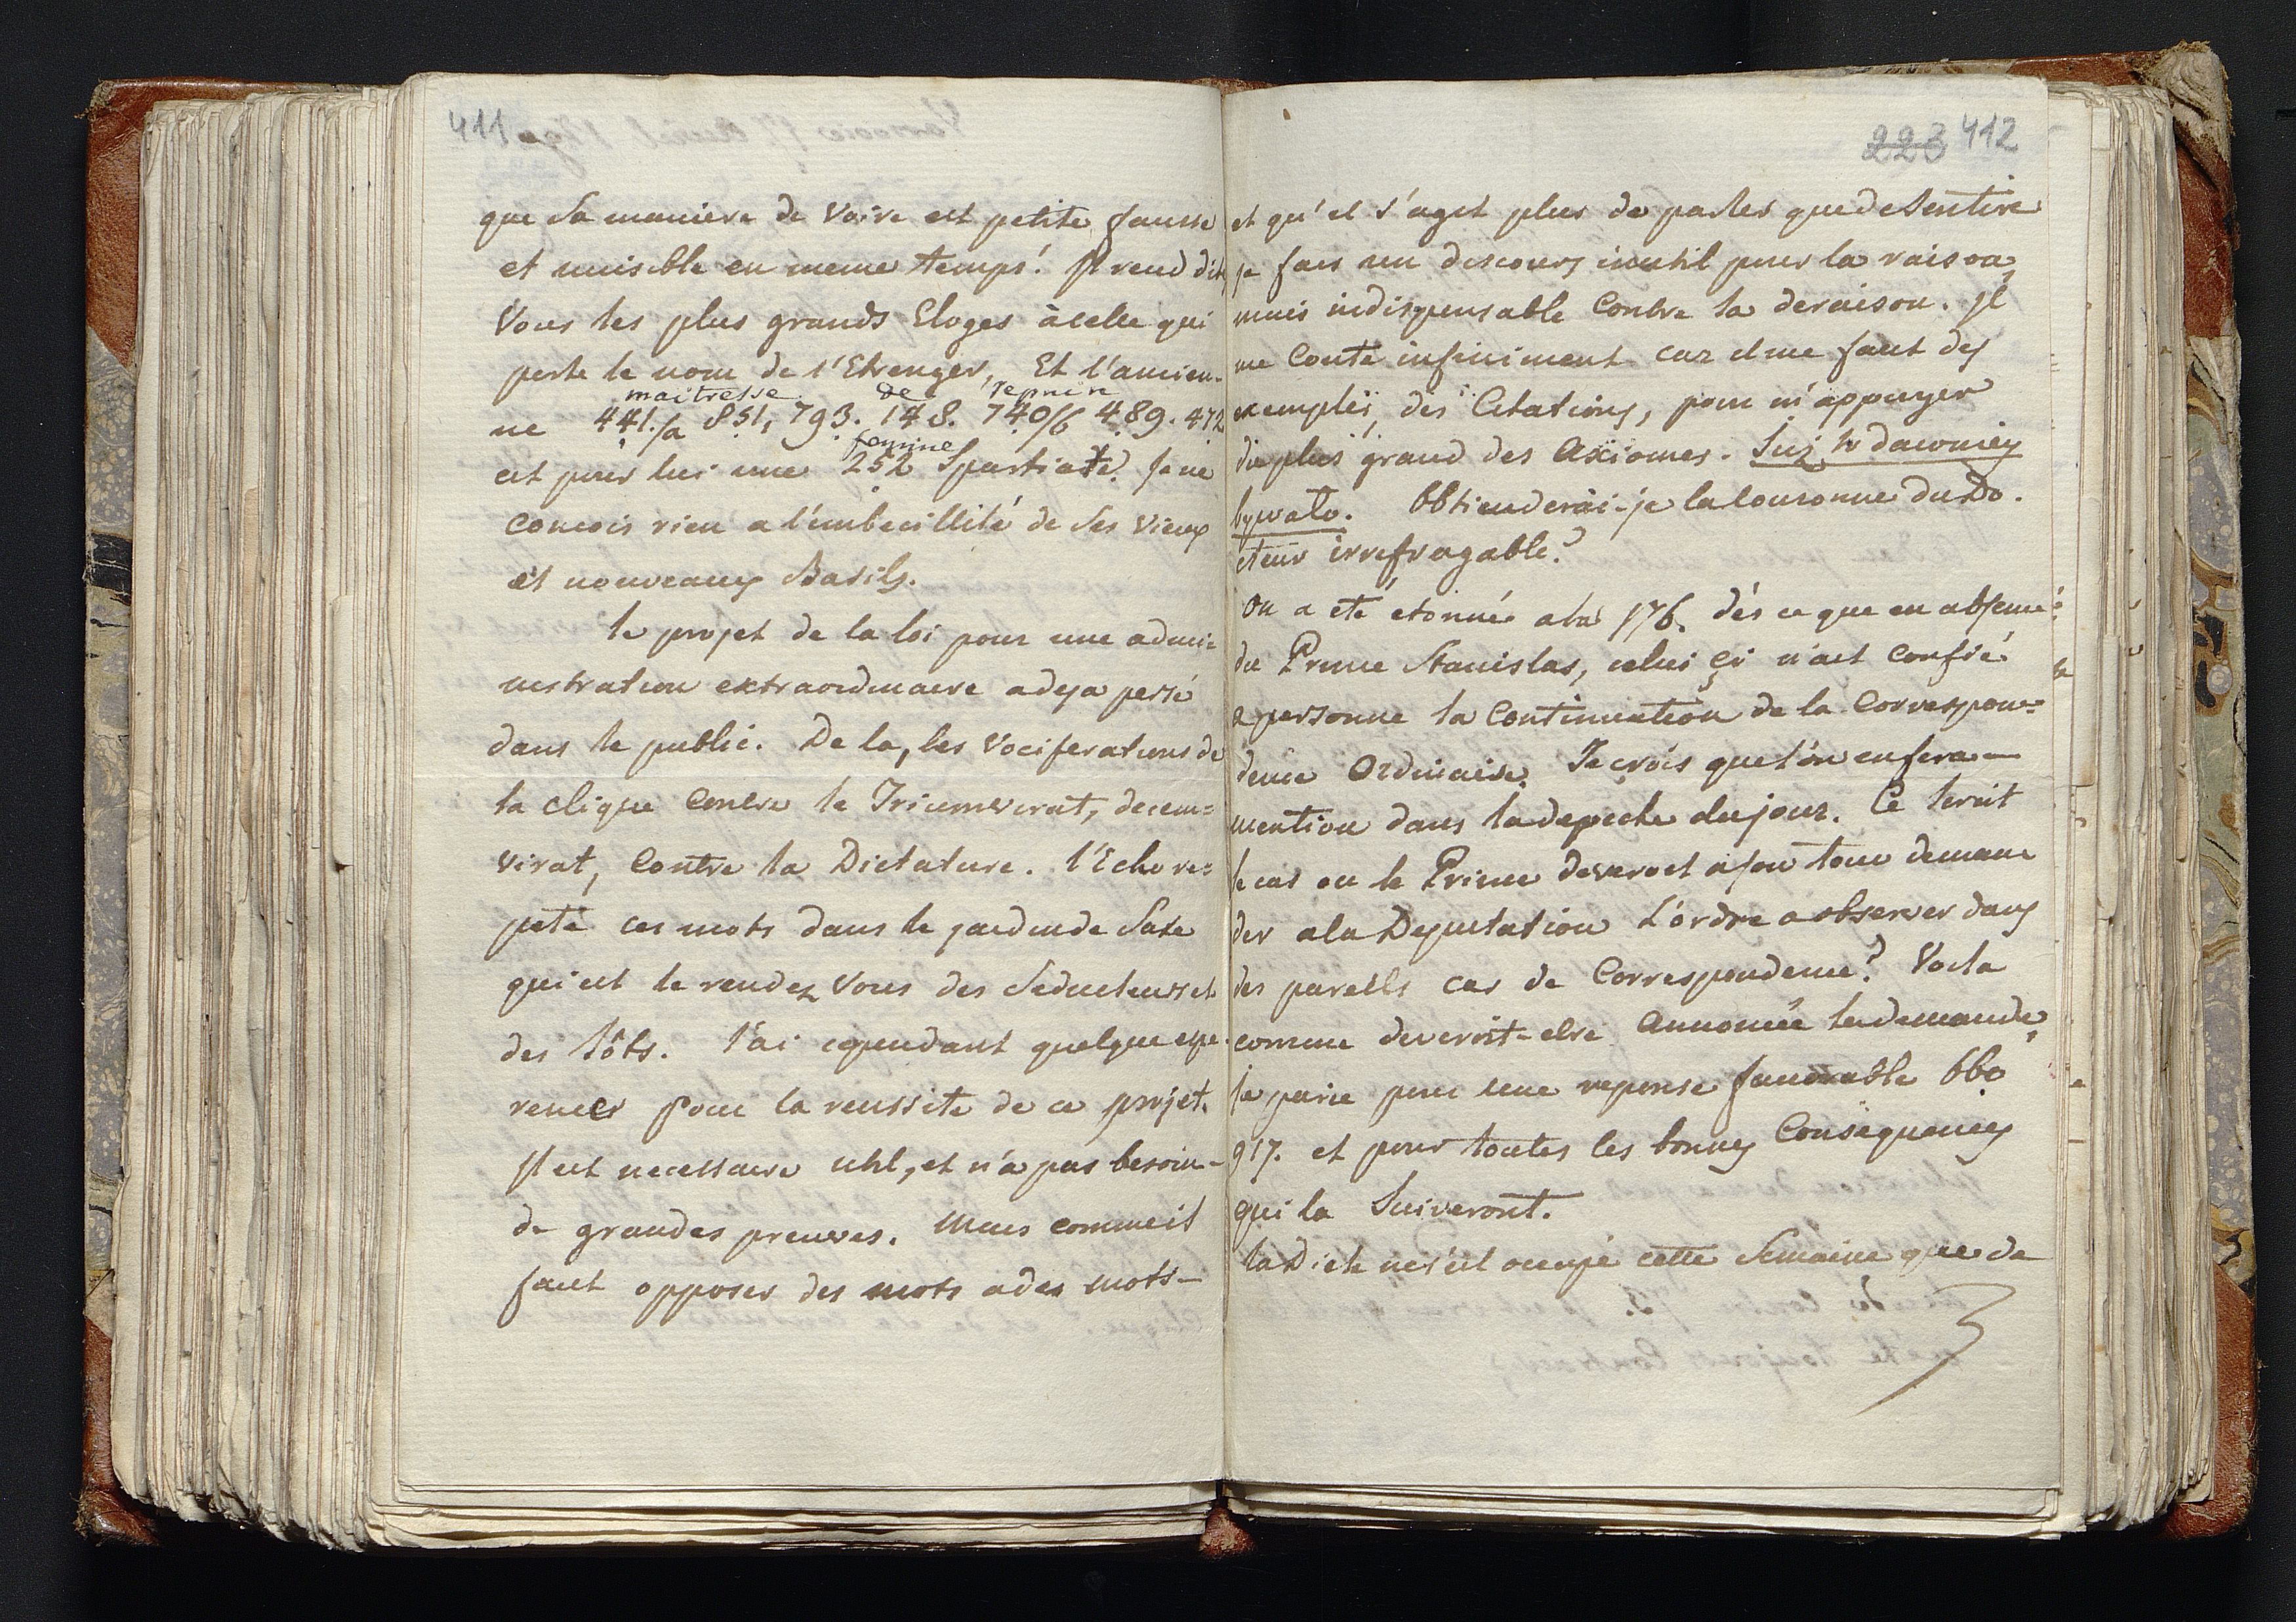 411
que sa maniere de Voire est petite, fausse
et nuisible en meme temps! Il rend dit
Vous les plus grands Eloges à celle qui
porte le nom de l'Etrenger, Et l'ancien-
maitresse de repnin
ne 441./a 851, 793. 148. 740/6 489. 472
femme
est pour lui une 252 Spartiate? Je ne
concois rien a l'imbecillité de ses vieux
et nouveaux Basils.
le projet de la loi pour une admi-
nistration extraordinaire a deja persé
dans le public. De la, les Vociferations de
la clique Contre le Triumvirat, decem-
virat, Contre la Dictature. l'Echo re-
peté ces mots dans le jardin de Saxe
qui est le rendez Vous des Seducteurs et
des Sôts. J'ai cependant quelque espe-
rences pour la reussite de ce projet.
Il est necessaire util, et n'a pas besoin-
de grandes preuves. Mais comme il
faut opposer des mots a des mots-
223 412
et qu'il s'agit plus de parler que de Sentire
je fais un discours inutil pour la raison,
mais indispensable Contre la deraison. Il
me Coute infiniment car il me faut des
exemples, des Citations, pour m'appuyer
du plus grand des Axiomes.
bywalo. Obtienderai-je la Couronne du Do-
cteur irrefragable?
On a eté etonné a la 176. dés ce que en absence
du Prince Stanislas, celui çi n'ait Confié
a personne la Continuation de la Correspon-
dence Ordinaire. Je crois que l'on en fera-
mention dans la depeche du jour. Ce seroit
le cas ou le Prince deveroit a son tour deman-
der a la Deputation l'ordre a observer dans
des pareils cas de Correspondence? Voila
comme deveroit-etre Annoncée la demande,
Je parie pour une reponse favorable 660
917. et pour toutes les bonnes Consequences
qui la Suiveront.
la Diete ne s'est occupé cette Semaine que de